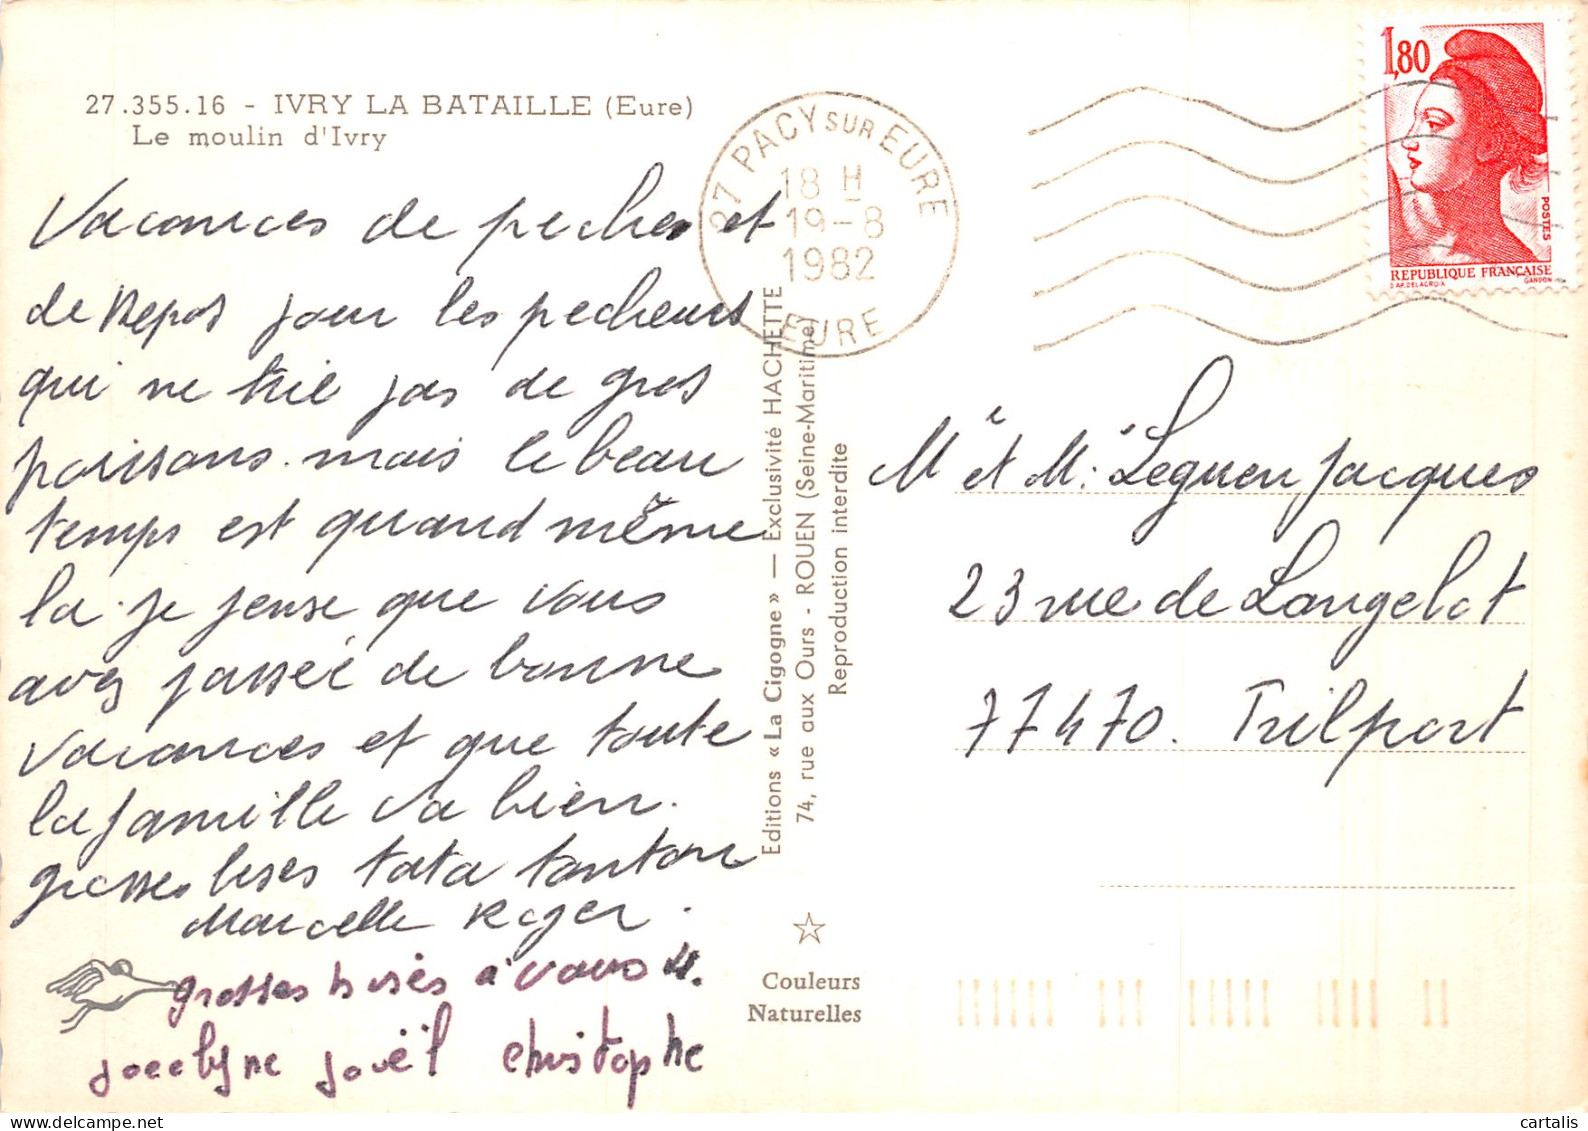 27.355.16 - IVRY LA BATAILLE (Eure)
Le moulin d'Ivry
Vacances de peches et
de Repos pour les pecheurs
qui ne trie pas de gros
poissons. mais le beau
temps est quand même
la. je pense que vous
avez passée de bonne
vacances et que toute
la famille va bien.
grosses bises tata tonton
Marcelle Roger.
grosses bisés à vous 4.
jocelyne jouël christophe
Editions « La Cigogne » — Exclusivité HACHETTE
74, rue aux Ours - ROUEN (Seine-Maritime)
Reproduction interdite
Couleurs
Naturelles
27 PACY SUR EURE
18 H
19-8
1982
EURE
1,80
POSTES
REPUBLIQUE FRANÇAISE
D'AP. DELACROIX
GANDON
Mr et Me Leguen Jacques
23 rue de Langelot
77470. Trilport
cartalis